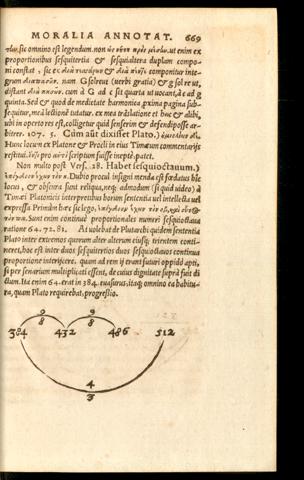 MORALIA ANNOTAT. 669
sic omnino est legendum. non ut enim ex
proportionibus sesquitertia & sesquialtera duplam compo
ni constat, sic ex διὰ & διὰ componitur inte-
grum nam G solreut (verbi gratia) & g sol re ut,
distant cum à G ad c sit quarta ut uocant, à c ad g
quinta. Sed & quod de medietate harmonica proxima pagina sub-
sequitur, mea lectione tutatur. ex mea translatione et huc & alibi,
ubi in operto res est, colligetur quid senserim & defendi posse ar-
bitrer. 107. 5. Cum aūt dixisset Plato.)
Hunc locum ex Platone & Procli in eius Timæum commentarijs
restitui. pro scriptum fuisse inepte, patet.
Non multo post Vers. 28. Habet sesquioctauum.)
Dubio procul insigni menda est fœdatus hic
locus, & obscura sunt reliqua, neq; admodum (si quid video) à
Timæi Platonici interpretibus horum sententia uel intellecta uel
expressa Prīmū hæc sic lego,
Sunt enim continuè proportionales numeri sesquioctaua
ratione 64. 72. 81. At uolebat de Plutarchi quidem sententia
Plato inter extremos quorum alter alterum eiusq; trientem conti-
neret, hoc est inter duos sesquitertios duos sesquioctauos continua
proportione interijcere. quam ad rem ij erant futuri oppidò apti,
si per senarium multiplicati essent, de cuius dignitate suprà fuit di
ctum. Ita enim 64. erat in 384. euasurus, itaq; omnino ea habitu-
ra, quam Plato requirebat, progressio.
9 9
8 8
384 432 486 512
4
3